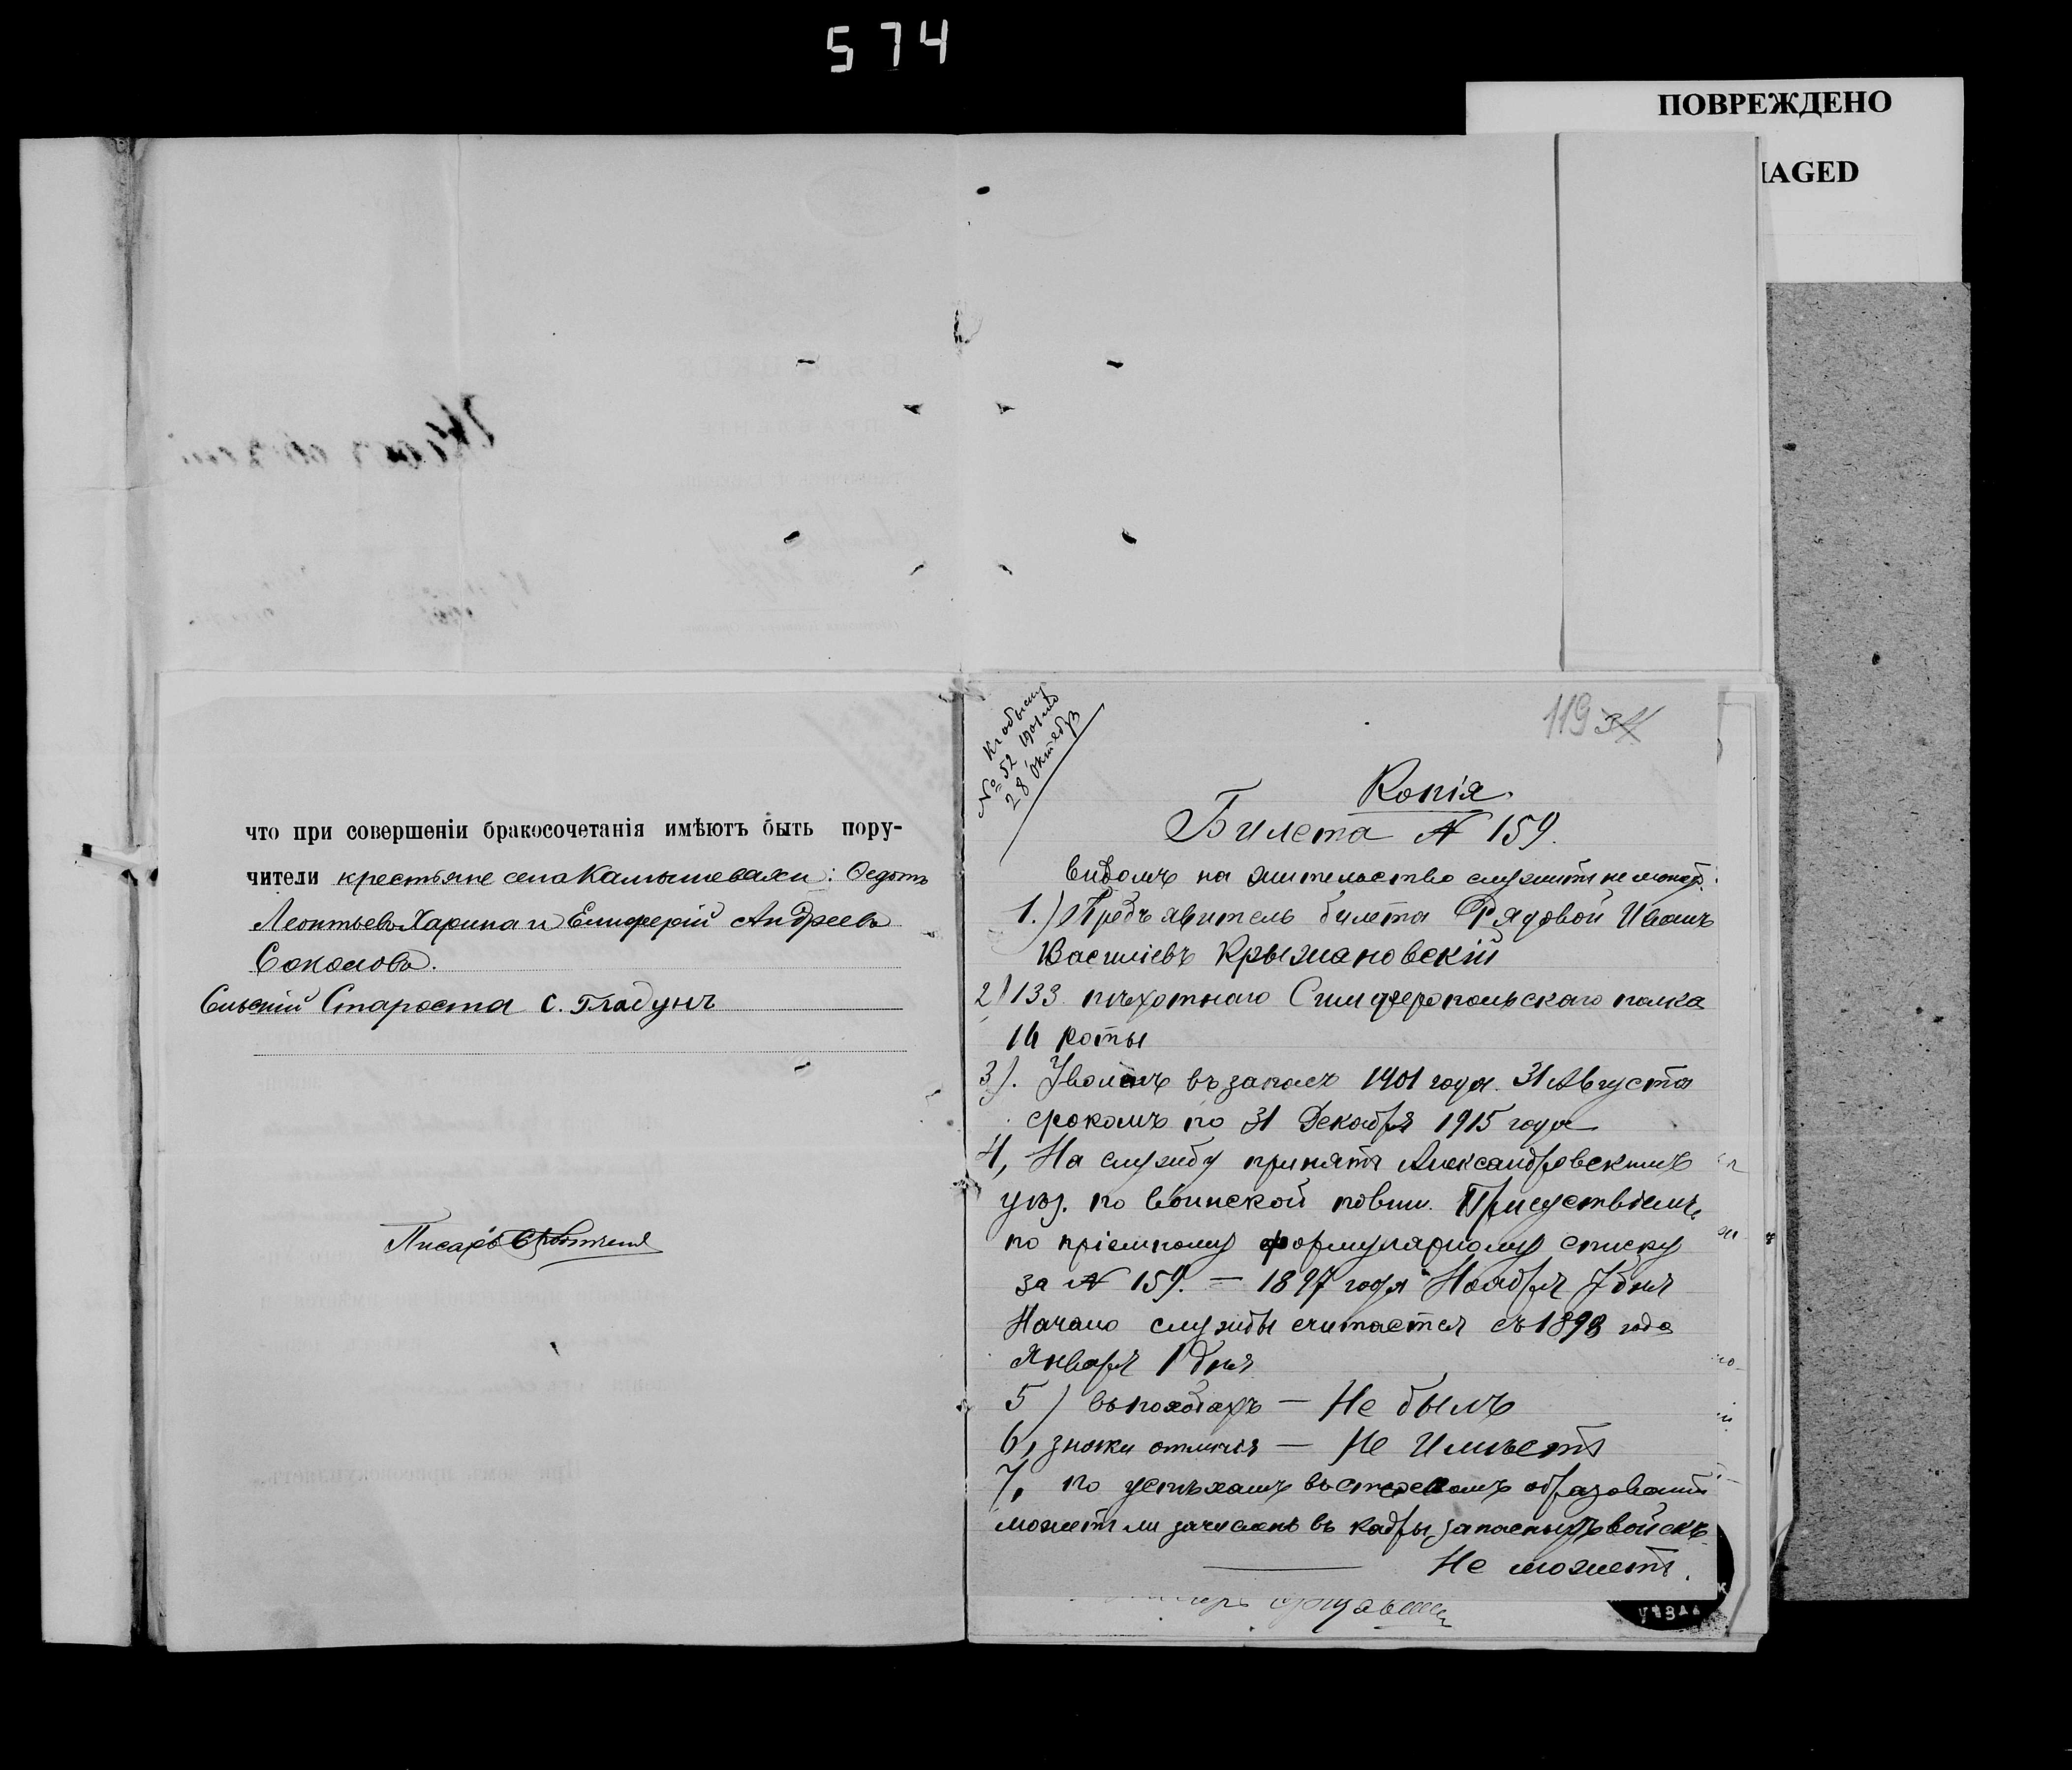 574
ПОВРЕЖДЕНО
AGED
что при совершеніи бракосочетанія имѣютъ быть пору-
чители крестьяне села Камышевахи: Ѳедотъ
Леонтьевъ Харина и Елиферій Андреевъ
Соколовъ.
Сельскій Староста С. Гладунъ
Писарь
Къ обыску
№ 52 1901 го
28 Октября
119
Копія
Билета № 159.
видомъ на жительство служить не можетъ.
1.) Предъявитель билета Рядовой Иванъ
Василіевъ Крыжановскій
2) 133 пѣхотнаго Симферопольскаго полка
14 роты
3). Уволенъ въ запасъ 1901 года 31 Августа
срокомъ по 31 Декабря 1915 года
4, На службу принятъ Александровскимъ
уѣз. по воинской повин. Присуствіемъ
по пріемному формулярному списку
за № 159. — 1897 года Ноября 7 дня
Начало службы считается съ 1898 года
Января 1 дня
5) въ походахъ — Не былъ
6, знаки отличія — Не Имѣетъ
7, по успѣхамъ въ строевомъ образованіи
можетъ ли зачисленъ въ кадры запасныхъ войскъ
Не можетъ.
УѢЗДА